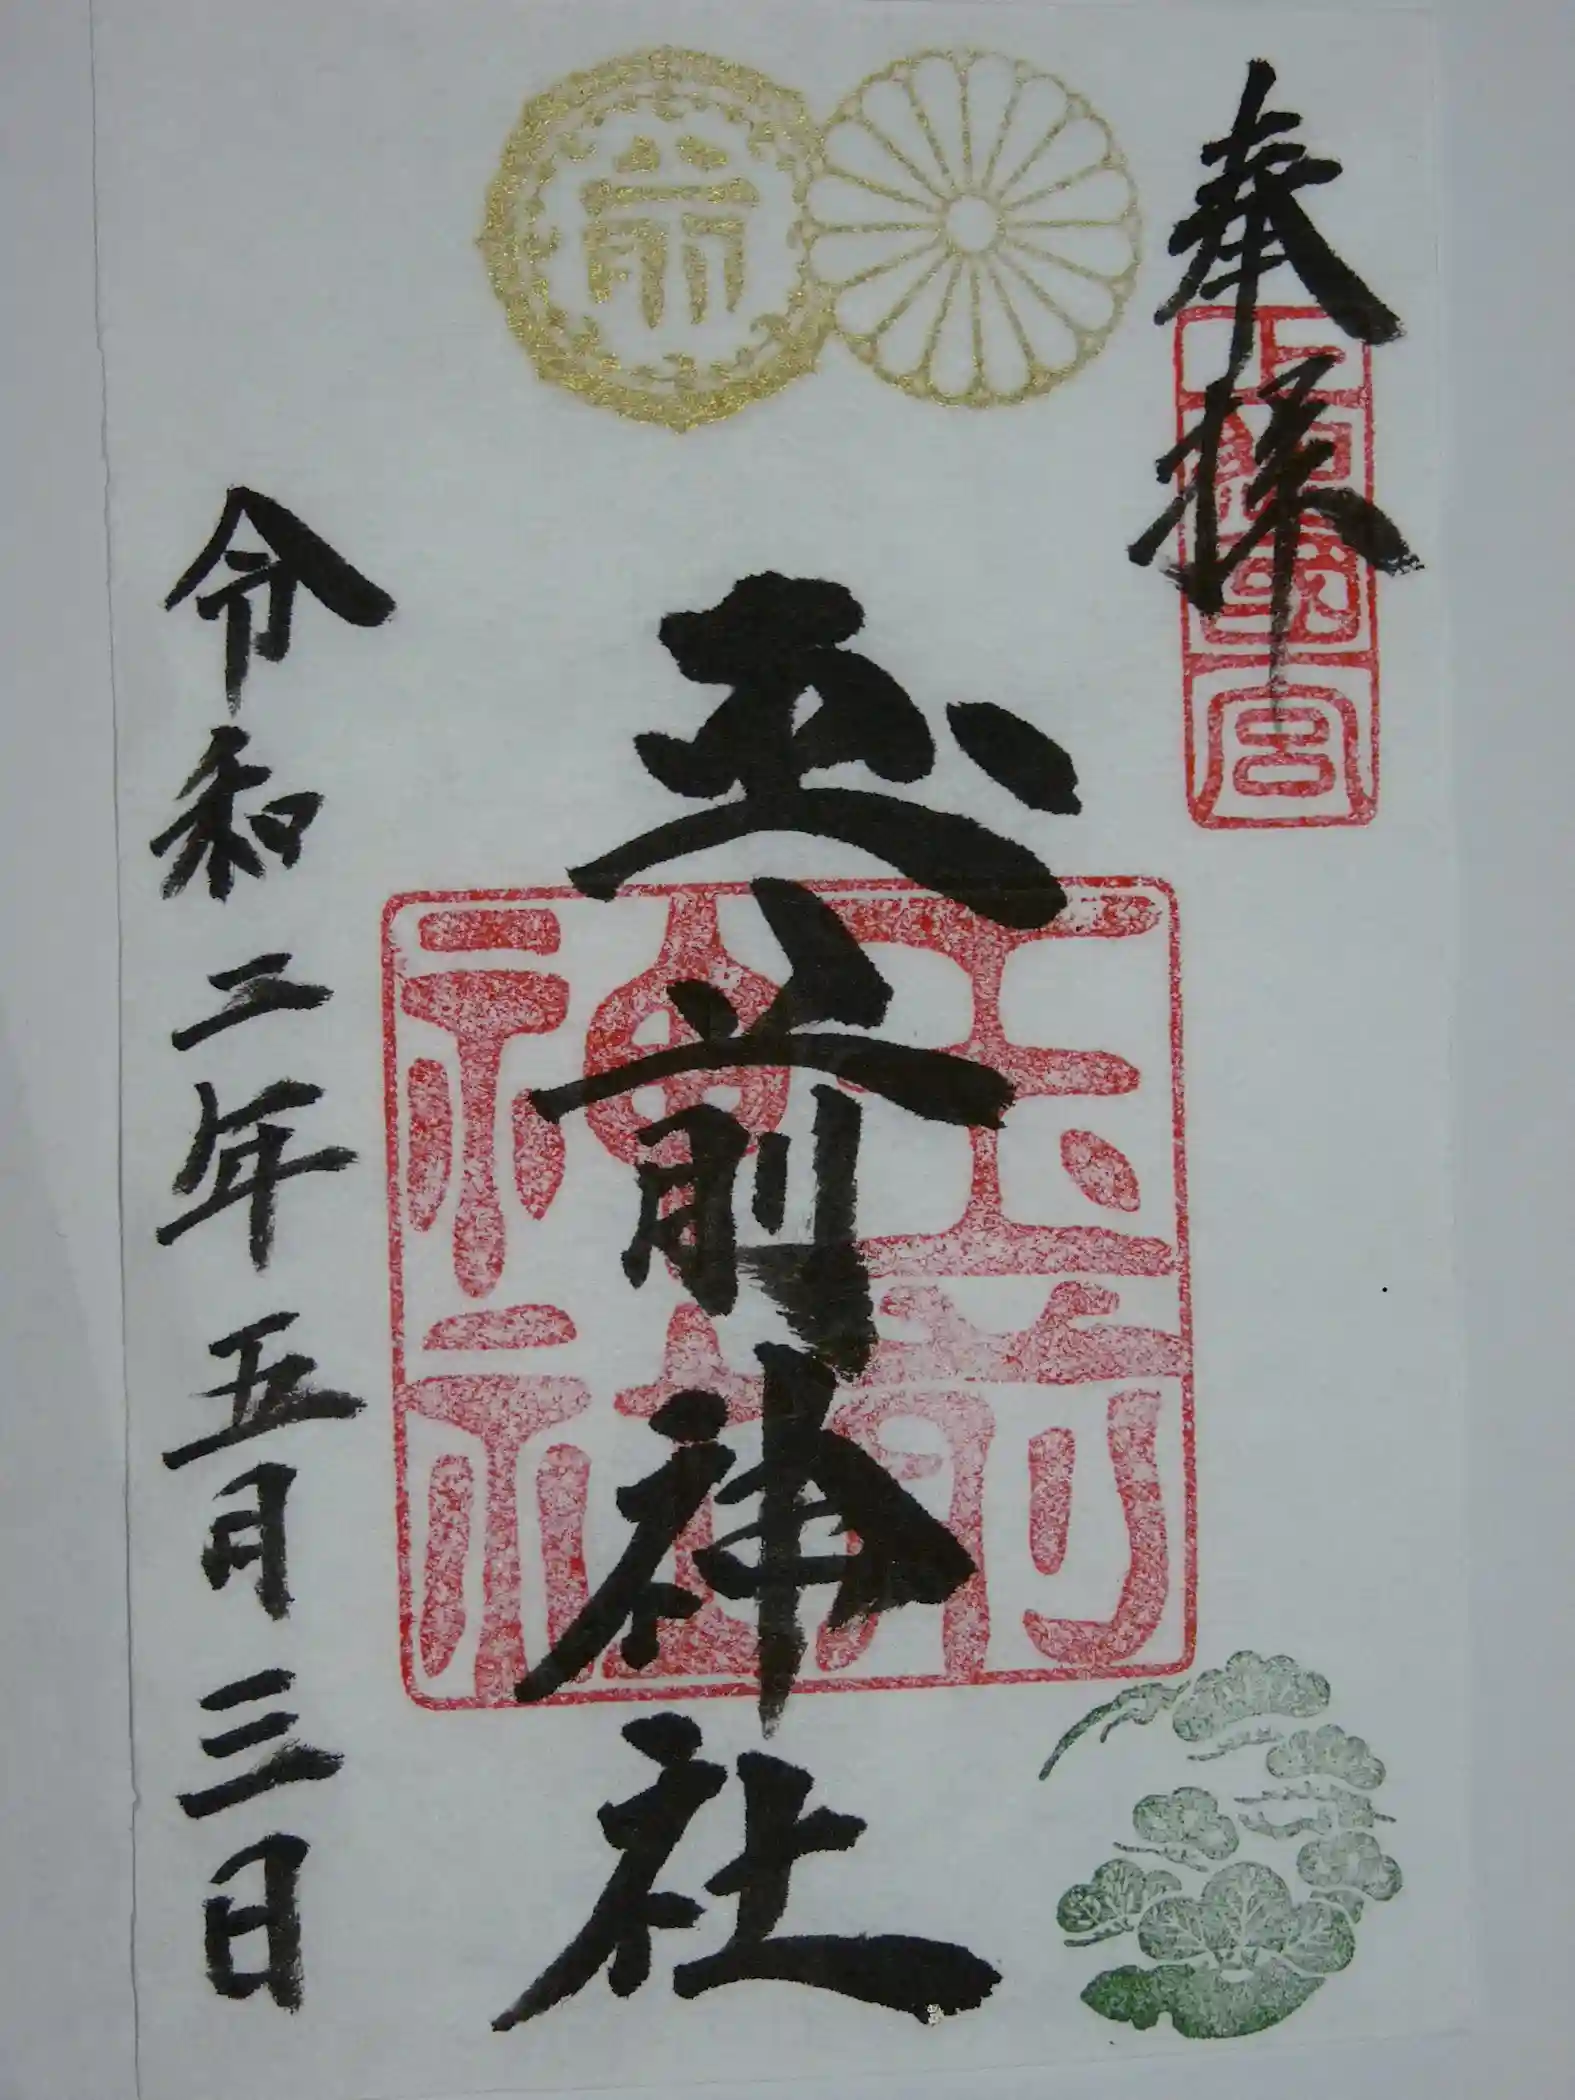 奉拝
上総国一宮
玉前神社
玉前神社
令和二年五月三日